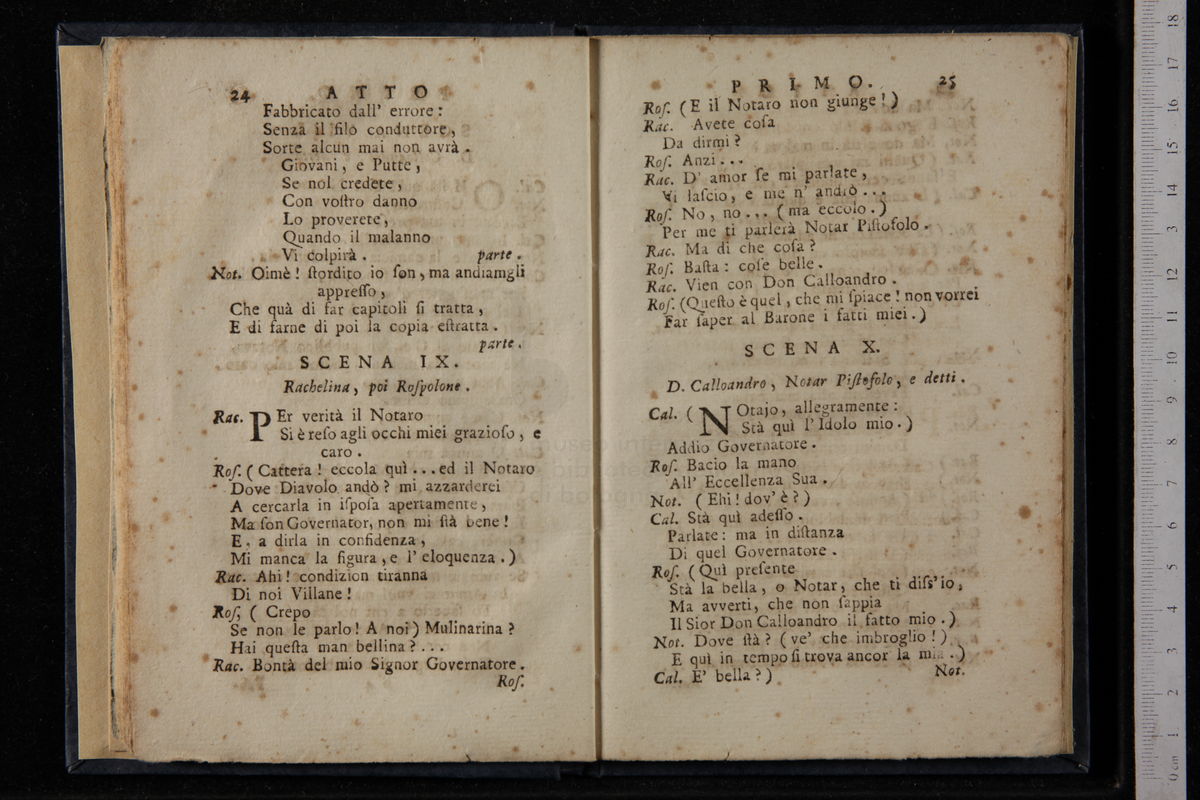 24 ATTO
Fabbricato dall' errore:
Senza il filo conduttore,
Sorte alcun mai non avrà.
Giovani, e Putte,
Se nol credete,
Con voſtro danno
Lo proverete,
Quando il malanno
Vi colpirà. parte.
Not. Oimè! ſtordito io ſon, ma andiamgli
appreſſo,
Che quà di far capitoli ſi tratta,
E di farne di poi la copia eſtratta.
parte.
SCENA IX.
Rachelina, poi Roſpolone.
Rac. PEr verità il Notaro
Si è reſo agli occhi miei grazioſo, e
caro.
Roſ. (Cattera! eccola quì... ed il Notaro
Dove Diavolo andò? mi azzarderei
A cercarla in iſpoſa apertamente,
Ma ſon Governator, non mi ſtà bene!
E, a dirla in confidenza,
Mi manca la figura, e l' eloquenza.)
Rac. Ahi! condizion tiranna
Di noi Villane!
Roſ, ( Crepo
Se non le parlo! A noi) Mulinarina?
Hai queſta man bellina?...
Rac. Bontà del mio Signor Governatore.
Roſ.
PRIMO. 25
Roſ. (E il Notaro non giunge!)
Rac. Avete coſa
Da dirmi?
Roſ. Anzi...
Rac. D' amor ſe mi parlate,
Vi laſcio, e me n' andrò...
Roſ. No, no... (ma eccolo.)
Per me ti parlerà Notar Piſtofolo.
Rac. Ma di che coſa?
Roſ. Baſta: coſe belle.
Rac. Vien con Don Calloandro.
Roſ. (Queſto è quel, che mi ſpiace! non vorrei
Far ſaper al Barone i fatti miei.)
SCENA X.
D. Calloandro, Notar Piſtofolo, e detti.
Cal. (NOtajo, allegramente:
Stà quì l'Idolo mio.)
Addio Governatore.
Roſ. Bacio la mano
All' Eccellenza Sua.
Not. (Ehi! dov' è?)
Cal. Stà quì adeſſo.
Parlate: ma in diſtanza
Di quel Governatore.
Roſ. (Quì preſente
Stà la bella, o Notar, che ti diſs'io,
Ma avverti, che non ſappia
Il Sior Don Calloandro il fatto mio.)
Not. Dove ſtà? (ve' che imbroglio!)
E quì in tempo ſi trova ancor la mia.)
Cal. E' bella?)
Not.